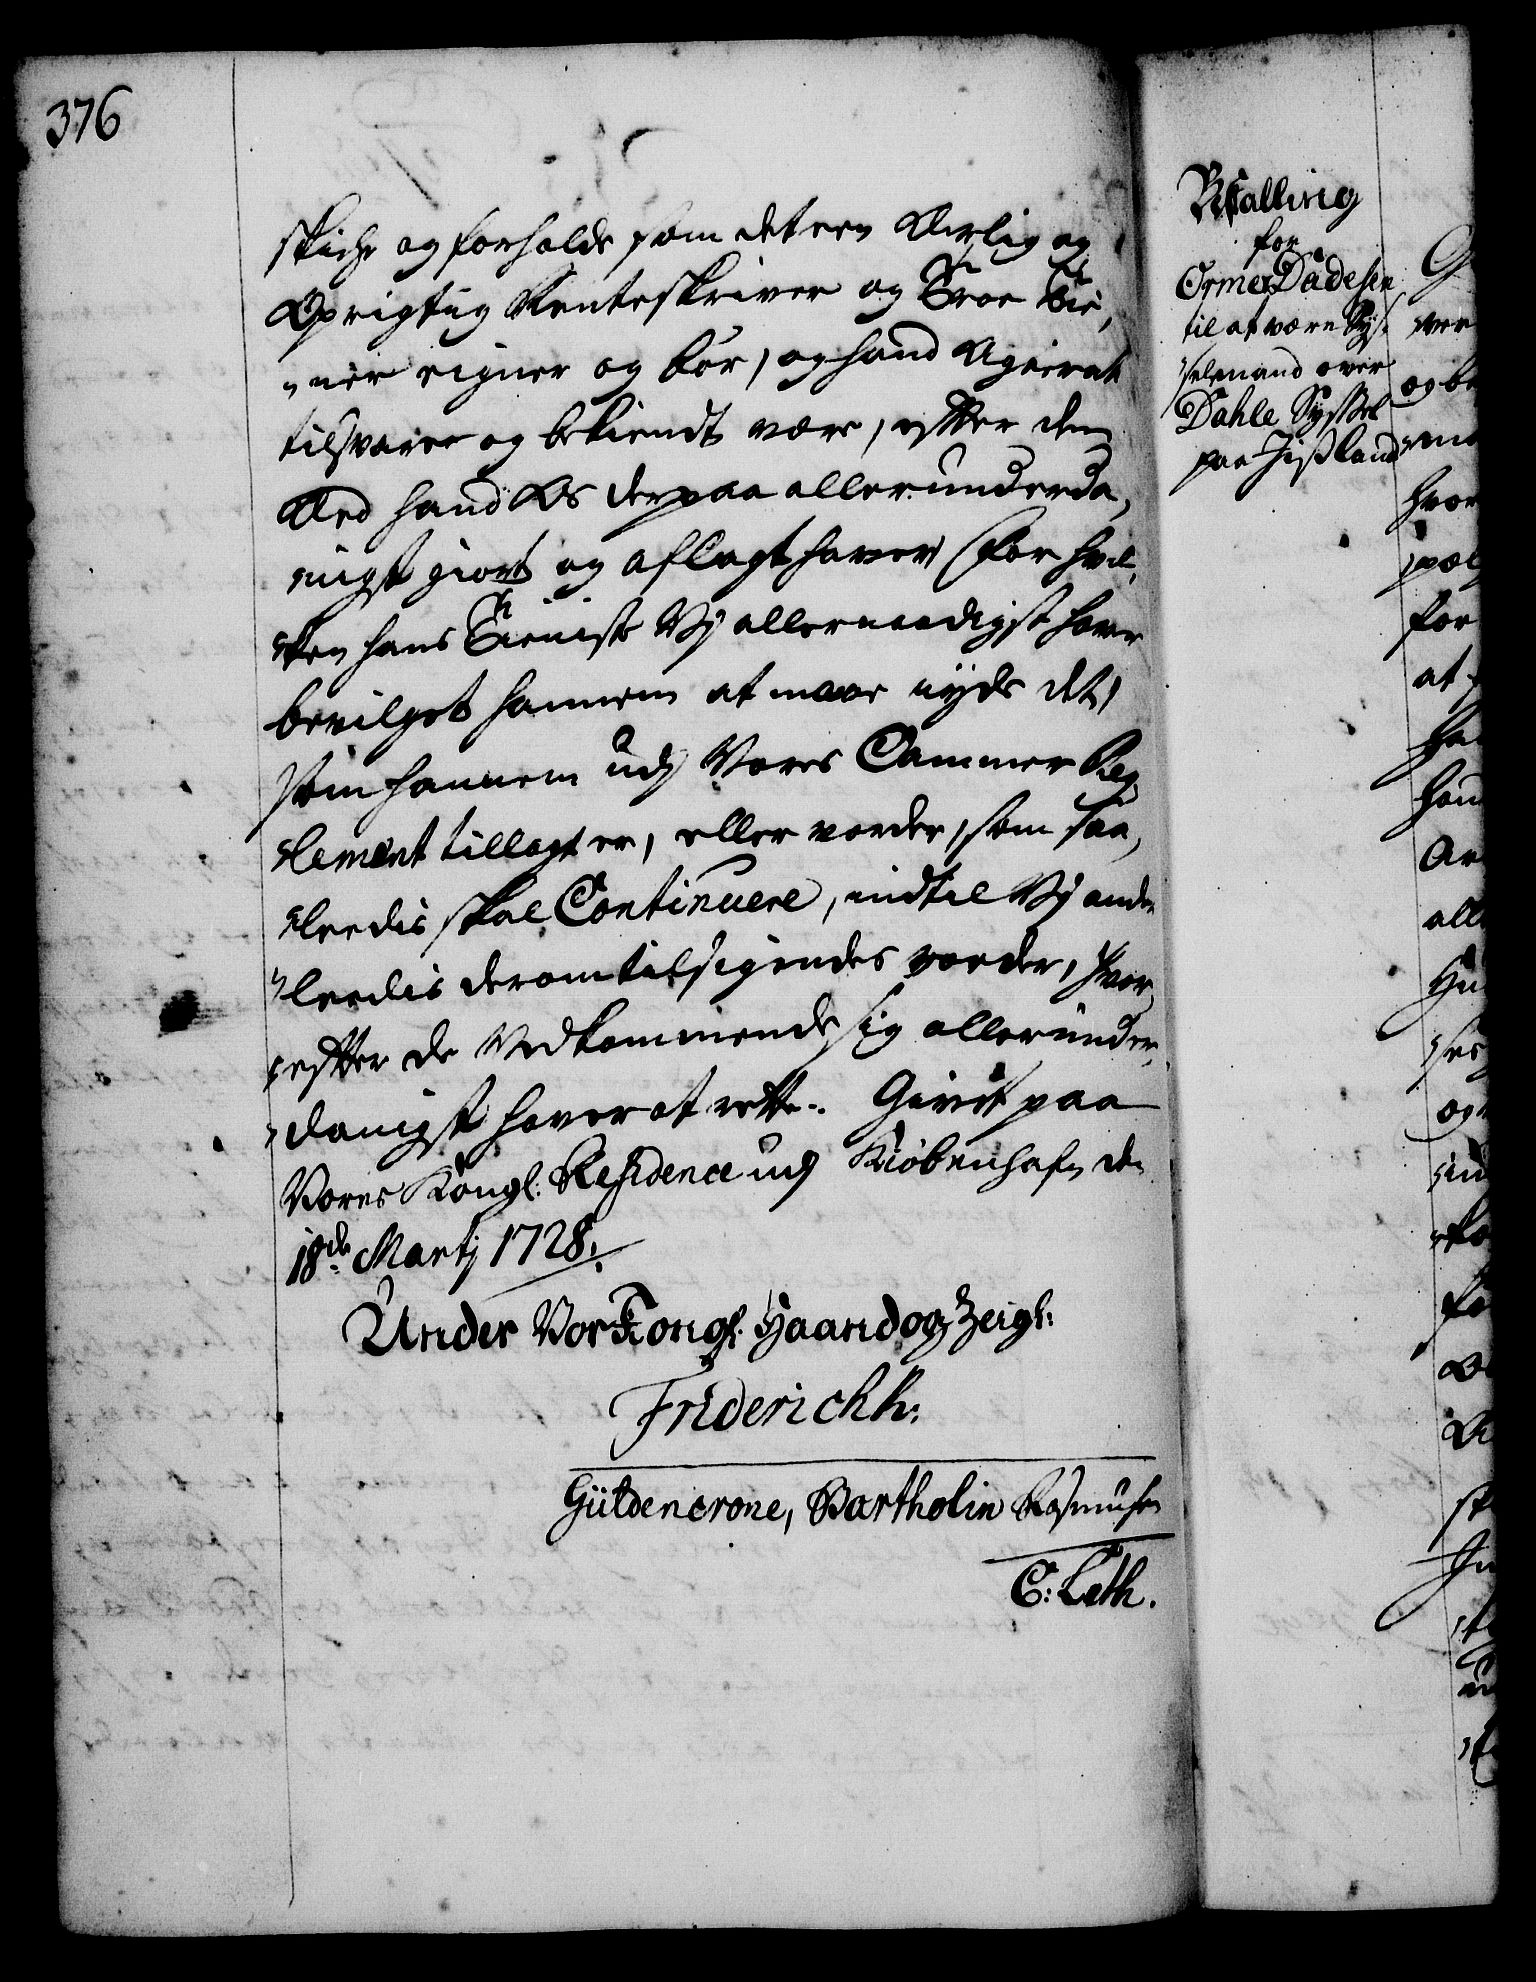 376
skiche og forholde som det een Ærlig og
Oprigtig Renteskriver og Troe Tie,
ner eigner og bør, og hand Agter at
tilsvare og bekiendt være, efter den
Æed hand Os derpaa allerunderda,
nigst giort og aflagt haver, for hvil,
ken hans Tieniste Vj allernaadigst have
bevilget hannem at maae nyde det,
som hannem udj Vores Cammer Reg
lement tillagt er, eller vorder, som saa,
leedis skal Continuere, indtil Vj ander
leedis derom tilsigendes vorder, hvor
efter de Vedkommende sig allerunder,
danigst haver at rette. Givet paa
Vores Kongl: Residence udj Kiöbenhafn den
18de Martij 1728.
Under Vor Kongl. Haand og Zeigl:
Friderich R:
Güldencrone, Bartholin Rasmusen
C: Leth.
Bestalling
for
Ormer Dadesen
til at være Sys,
selmand over
Dahle Syssel
paa Jisland